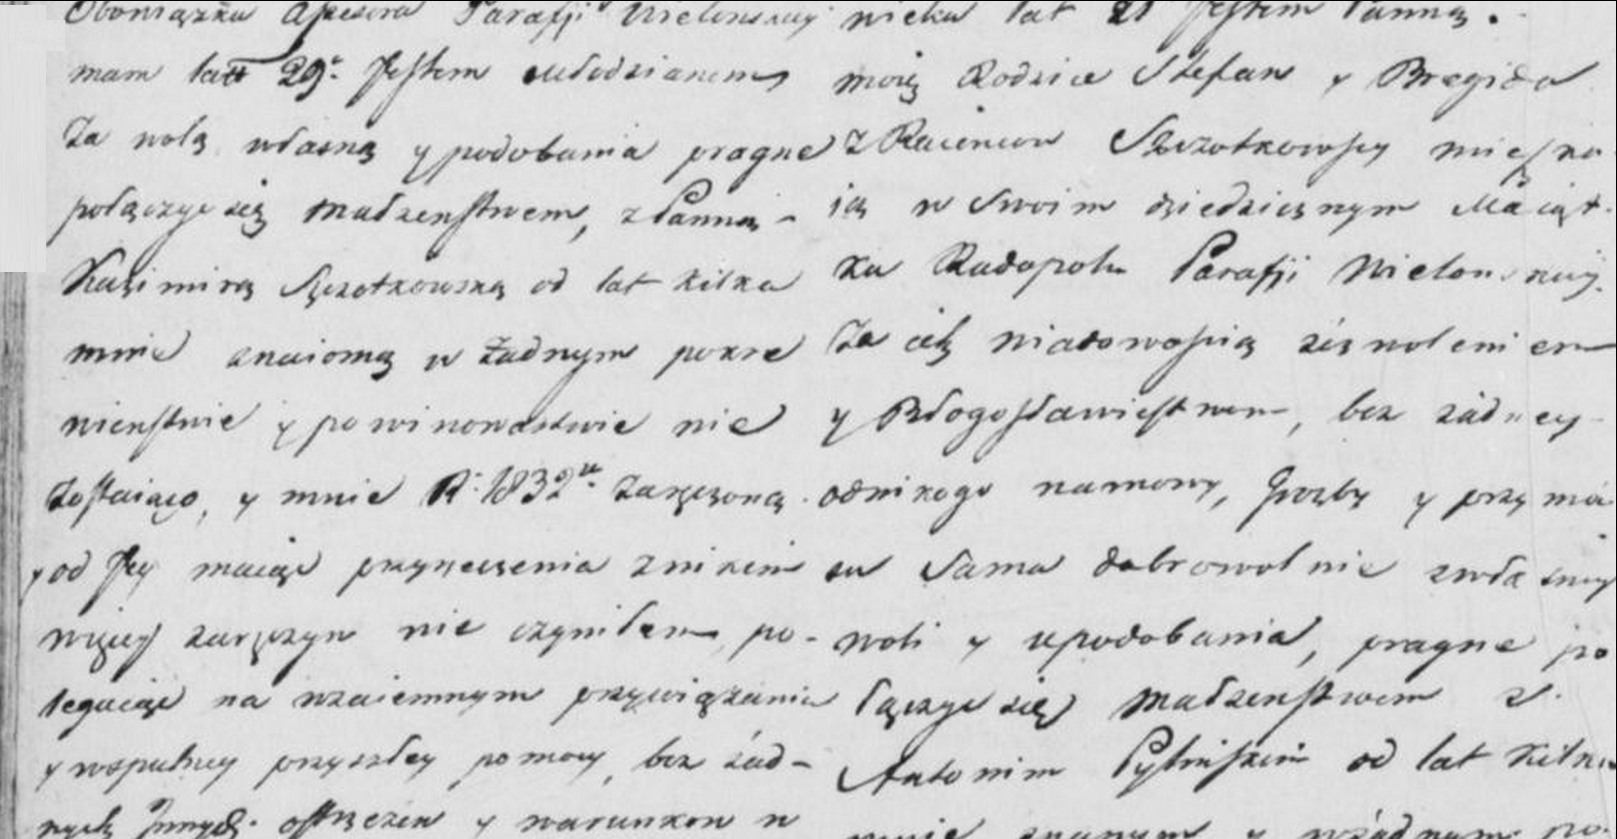 Obowiązku Assesora Parafji Wielonskiey
mam lat 29. Jestem Młodzianem
Za wolą własną y podobania pragne
połączyć się Małżenstwem, z Panną -
Kazimirą Szczotkowską od lat kilka
mnie znaiomą w żadnym pokre
wienstwie y powinowactwie nie
Zostaiąco, y mnie R: 1832 Zaręczoną
y od Jey maiąc przyrzeczenia z nikim
więcey zaręczyn nie czyniłem, po-
legaiąc na wzaiemnym przywiązaniu
y wspulney przyszłey pomocy, bez żad-
nych Innych ostrzeżen y warunkow w
wieku lat 21 Jestem Panną.
moią Rodzice Stefan y Bregida
z Szczotkowscy mieszka
ią w Swoim dziedzicznym Maiąt-
ku Radopolu Parafji Wielonskiey.
Za ich wiadomością zezwoleniem
y Błogosławienstwem, bez żadney
od nikogo namowy, Groźby y przymu
su Sama dobrowolnie z własney
woli y upodobania, pragne po
łączyć się Małżenstwem z
Antonim od lat kilku
mnie znanym y w żadnym po